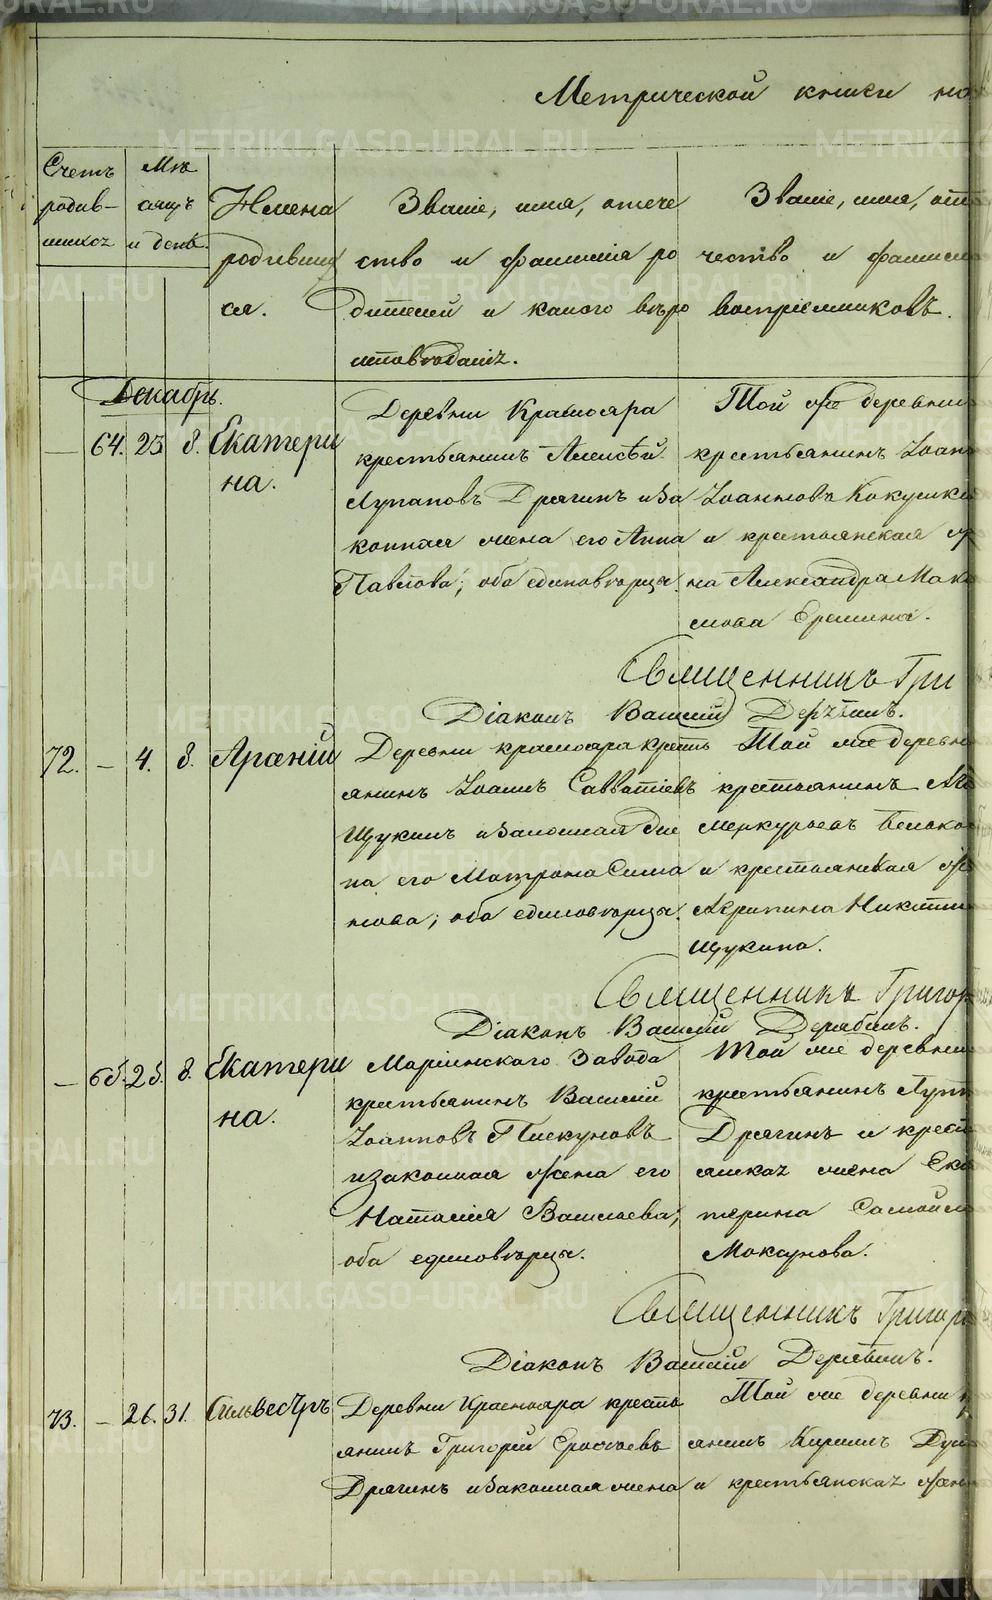 Метрической книги
Счетъ родив-шихся
Мѣсяцъ и день.
Имена родившихся.
Званіе, имя, отечество и фамилія родителей и какого вѣроисповѣданія.
Званіе, имя, отчество и фамилія воспріемниковъ.
Декабрь.
64. 25 8. Екатерина.
Деревни Краснояра
крестьянинъ Алексѣй
Лупановъ Дрягинъ и за
конная жена его Анна
Павлова; оба единовѣрцы.
Той же деревни
крестьянинъ Іоан
Іоанновъ
и крестьянская
на Александра Мак
мова Еремина.
Священникъ Гри
Діаконъ Василій Дерябинъ.
72. – 4. 8. Арсеній
Деревни Краснояра кресть
янинъ Іоаннъ Савватіевъ
Щукинъ и законная же
на его Матрона Симо
нова; оба единовѣрцы.
Той же деревн
крестьянинъ
Меркурьевъ Белоко
и крестьянская
Агрипина Никити
Щукина.
Священникъ Григор
Діаконъ Василій Дерябинъ.
– 65. 25. 8. Екатерина.
Маріинскаго Завода
крестьянинъ Василій
Іоанновъ Пискуновъ
и законная жена его
Наталія Васильева;
оба единовѣрцы.
Той же деревни
крестьянинъ Луп
Дрягинъ и крест
янская жена Ека
терина Самойл
Мокрунова.
Священникъ Григор
Діаконъ Василій Дерябинъ.
73. – 26. 31. Сильвестръ
Деревни Краснояра кресть
янинъ Григорій Ерофѣевъ
Дрягинъ и законная жена
Той же деревни к
янинъ Кирилъ
и крестьянская жен
METRIKI.GASO-URAL.RU